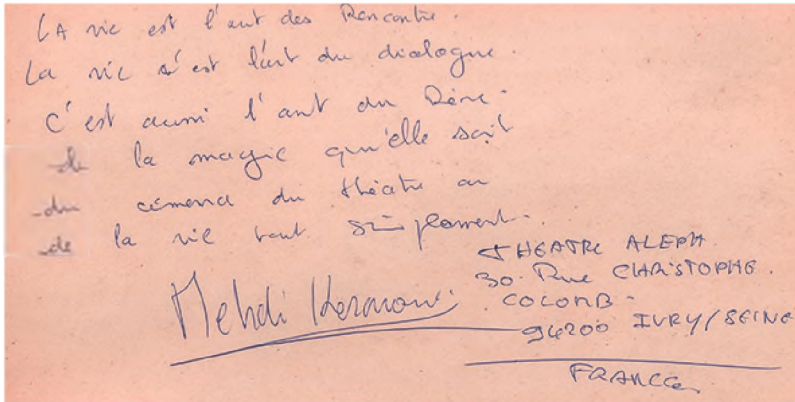 LA vie est l'art des Rencontre.
La vie c'est l'art du dialogue.
C'est aussi l'art du Rêve.
de la magie qu'elle soit
du cinema du théatre ou
de la vie tout simplement.
THEATRE ALEPH
30 Rue CHRISTOPHE
COLOMB -
94200 IVRY/SEINE
Mehdi
FRANCE